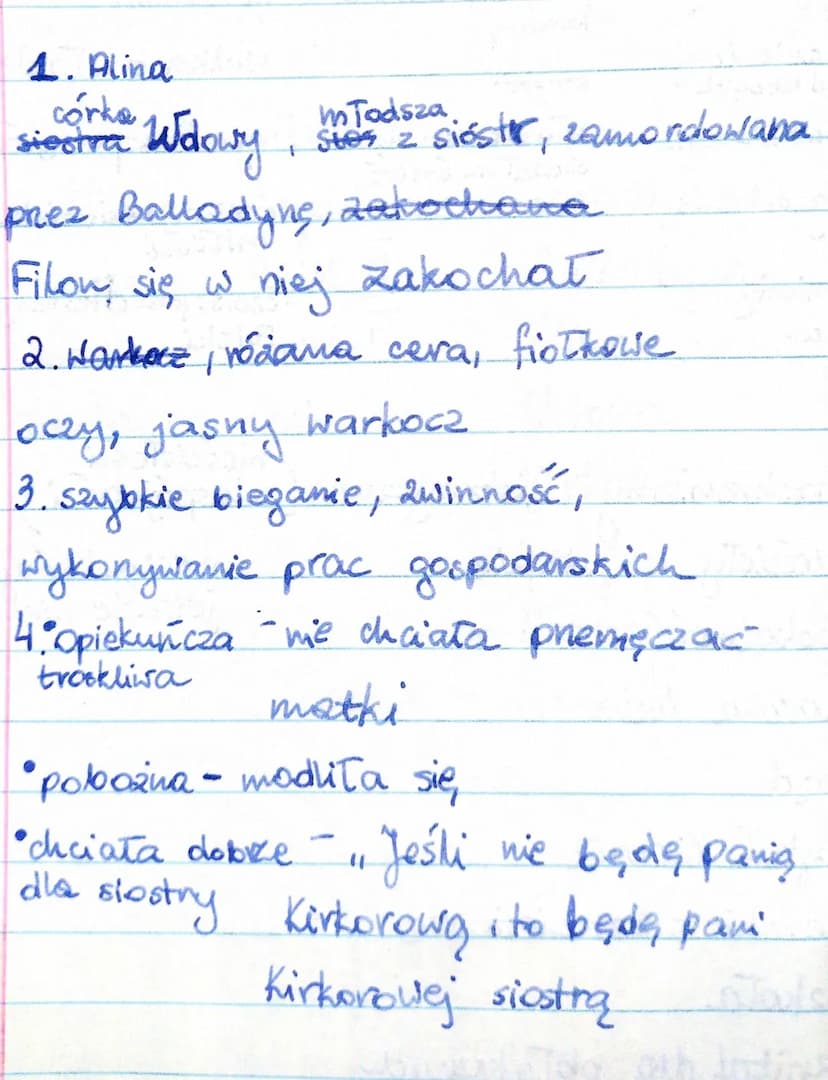 1. Alina
córka młodsza
siostra Wdowy, sios z sióstr, zamordowana
przez Balladynę, zakochana
Filon się w niej zakochał
2. Warkocz, różana cera, fiołkowe
oczy, jasny warkocz
3. szybkie bieganie, zwinność,
wykonywanie prac gospodarskich
4. • opiekuńcza - nie chciała przemęczać
troskliwa
matki
• pobożna - modliła się
• chciała dobrze - „Jeśli nie będę panią
dla siostry
Kirkorową, to będę pani
Kirkorowej siostrą